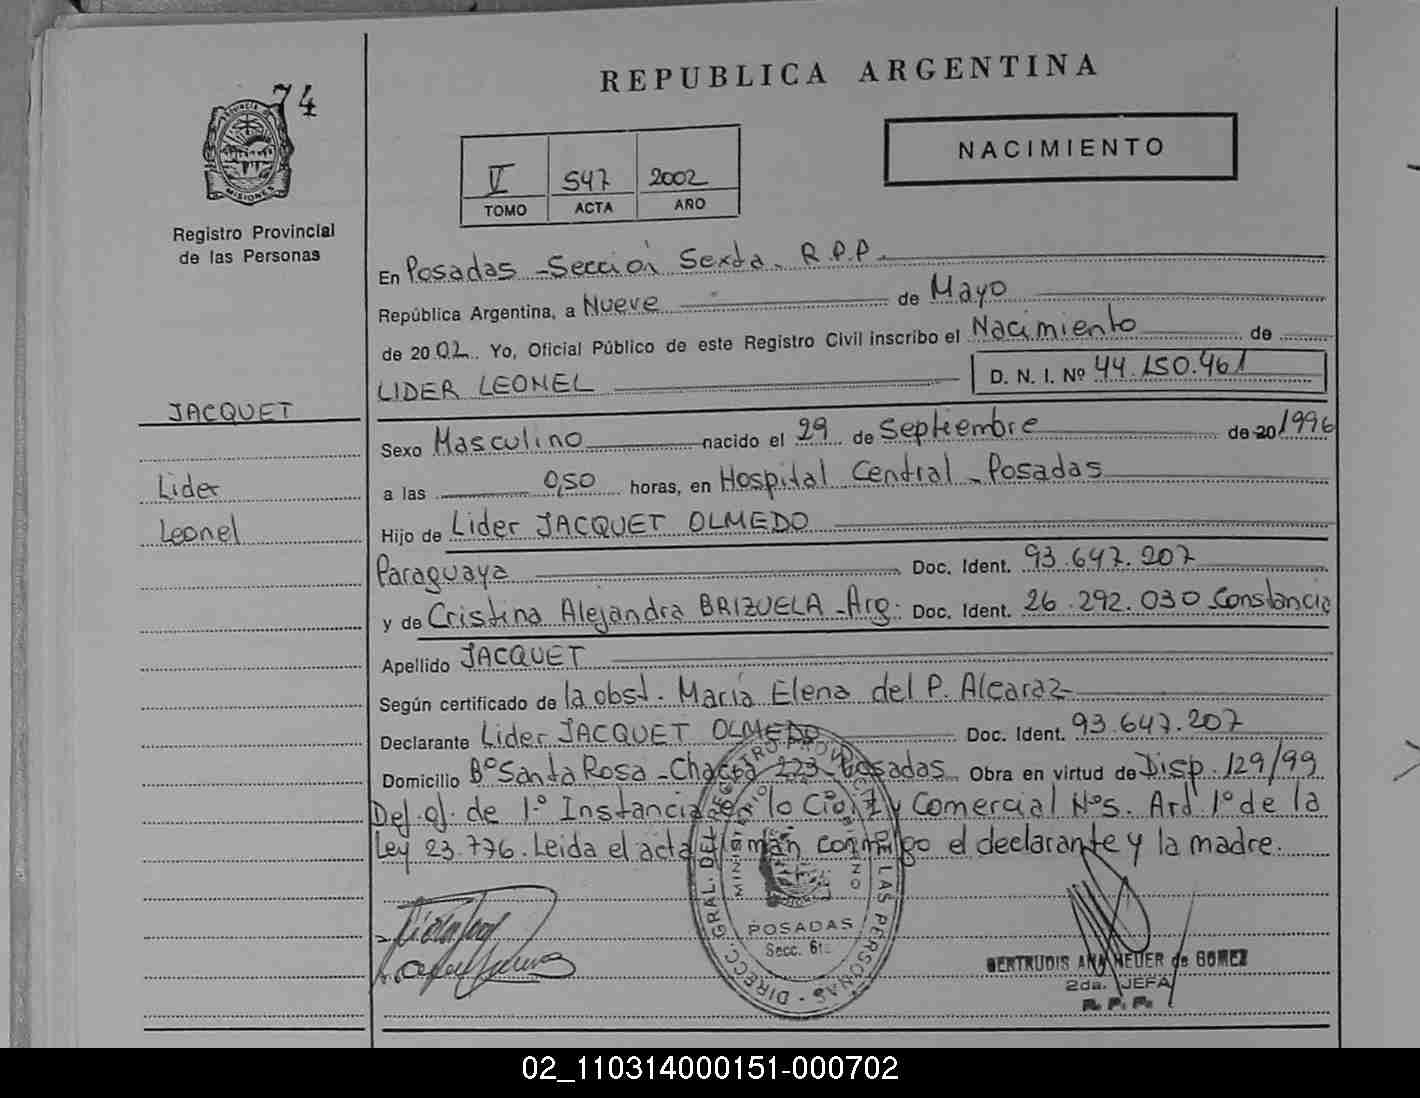 74
REPUBLICA ARGENTINA
NACIMIENTO
V 547 2002
TOMO ACTA AÑO
PROVINCIA DE MISIONES
Registro Provincial
de las Personas
En Posadas - Sección Sexta. R.P.P.
República Argentina, a Nueve de Mayo
de 2002. Yo, Oficial Público de este Registro Civil inscribo el Nacimiento de
LIDER LEONEL D. N. I. Nº 44.150.461
JACQUET
Sexo Masculino nacido el 29 de Septiembre de 20 1996
Lider
a las 0,50 horas, en Hospital Central - Posadas
Leonel
Hijo de Lider JACQUET OLMEDO
Paraguaya Doc. Ident. 93.647.207
y de Cristina Alejandra BRIZUELA - Arg. Doc. Ident. 26.292.030 Constancia
Apellido JACQUET
Según certificado de la obst. María Elena del P. Alcaraz
Declarante Lider JACQUET OLMEDO Doc. Ident. 93.647.207
Domicilio Bº Santa Rosa - Chacra 223 - Posadas Obra en virtud de Disp. 129/99
Def. of. de 1.º Instancia en lo Civil y Comercial Nº5. Ard 1º de la
Ley 23.776. Leida el acta firman conmigo el declarante y la madre.
DIRECC. GRAL. DEL REGISTRO PROVINCIAL DE LAS PERSONAS
MINISTERIO DE GOBIERNO
POSADAS
Secc. 6ta.
GERTRUDIS ANA HEUER de GOMEZ
2da. JEFA
R. P. P.
02_110314000151-000702